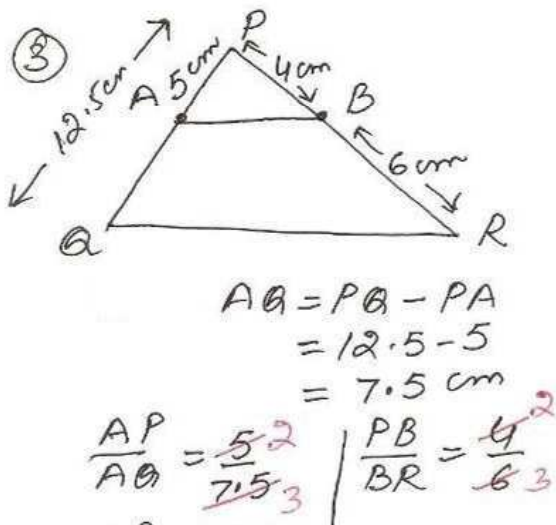 3
P
12.5cm
A 5cm
4cm
B
6cm
Q
R
AQ = PQ - PA
= 12.5 - 5
= 7.5 cm
AP/AQ = 5/7.5 2/3 | PB/BR = 4/6 2/3